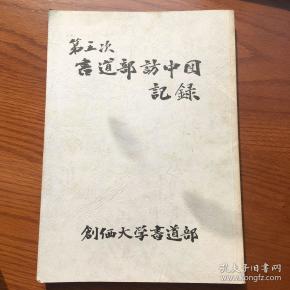 第五次
書道部訪中国
記録
創価大学書道部
孔夫子旧书网